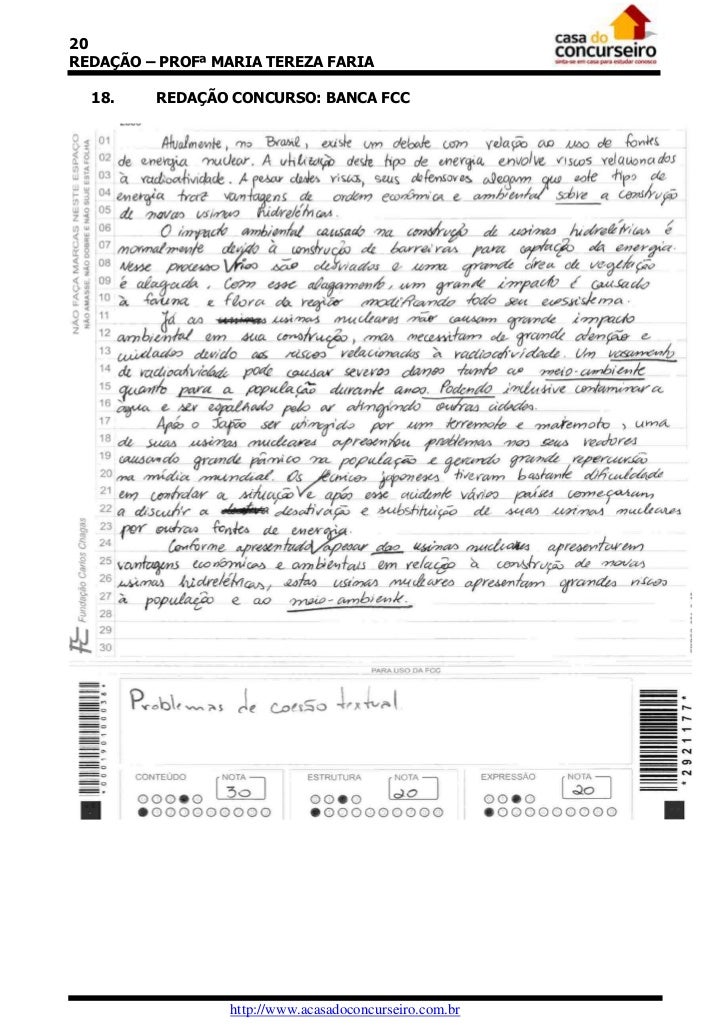 20
REDAÇÃO – PROFª MARIA TEREZA FARIA
casa do
concurseiro
sinta-se em casa para estudar conosco
18. REDAÇÃO CONCURSO: BANCA FCC
NÃO FAÇA MARCAS NESTE ESPAÇO
NÃO AMASSE, NÃO DOBRE E NÃO SUJE ESTA FOLHA
01 Atualmente, no Brasil, existe um debate com relação ao uso de fontes
02 de energia nuclear. A utilização deste tipo de energia envolve riscos relacionados
03 à radioatividade. A pesar destes riscos, seus defensores alegam que este tipo de
04 energia traz vantagens de ordem econômica e ambiental sobre a construção
05 de novas usinas hidrelétricas.
06 O impacto ambiental causado na construção de usinas hidrelétricas é
07 normalmente devido à construção de barreiras para captação da energia.
08 Nesse processo rios são desviados e uma grande área de vegetação
09 é alagada. Com esse alagamento, um grande impacto é causado
10 à fauna e flora da região modificando todo seu ecossistema.
11 Já as usinas usinas nucleares não causam grande impacto
12 ambiental em sua construção, mas necessitam de grande atenção e
13 cuidados devido aos riscos relacionados à radioatividade. Um vasamento
14 de radioatividade pode causar severos danos tanto ao meio-ambiente
15 quanto para a população durante anos. Podendo inclusive contaminar a
16 água e ser espalhado pelo ar atingindo outras cidades.
17 Após o Japão ser atingido por um terremoto e maremoto, uma
18 de suas usinas nucleares apresentou problemas nos seus reatores
19 causando grande pânico na população e gerando grande repercursão
20 na mídia mundial. Os técnicos japoneses tiveram bastante dificuldade
21 em controlar a situação e após esse acidente vários países começaram
22 a discutir a desativação e substituição de suas usinas nucleares
23 por outras fontes de energia.
24 Conforme apresentado apesar das usinas nucleares apresentarem
25 vantagens econômicas e ambientais em relação à construção de novas
26 usinas hidrelétricas, estas usinas nucleares apresentam grandes riscos
27 à população e ao meio-ambiente.
28
29
30
Fundação Carlos Chagas
PARA USO DA FCC
Problemas de coesão textual.
*0001901000038*
*2921177*
CONTEÚDO NOTA 30 ESTRUTURA NOTA 20 EXPRESSÃO NOTA 20
http://www.acasadoconcurseiro.com.br